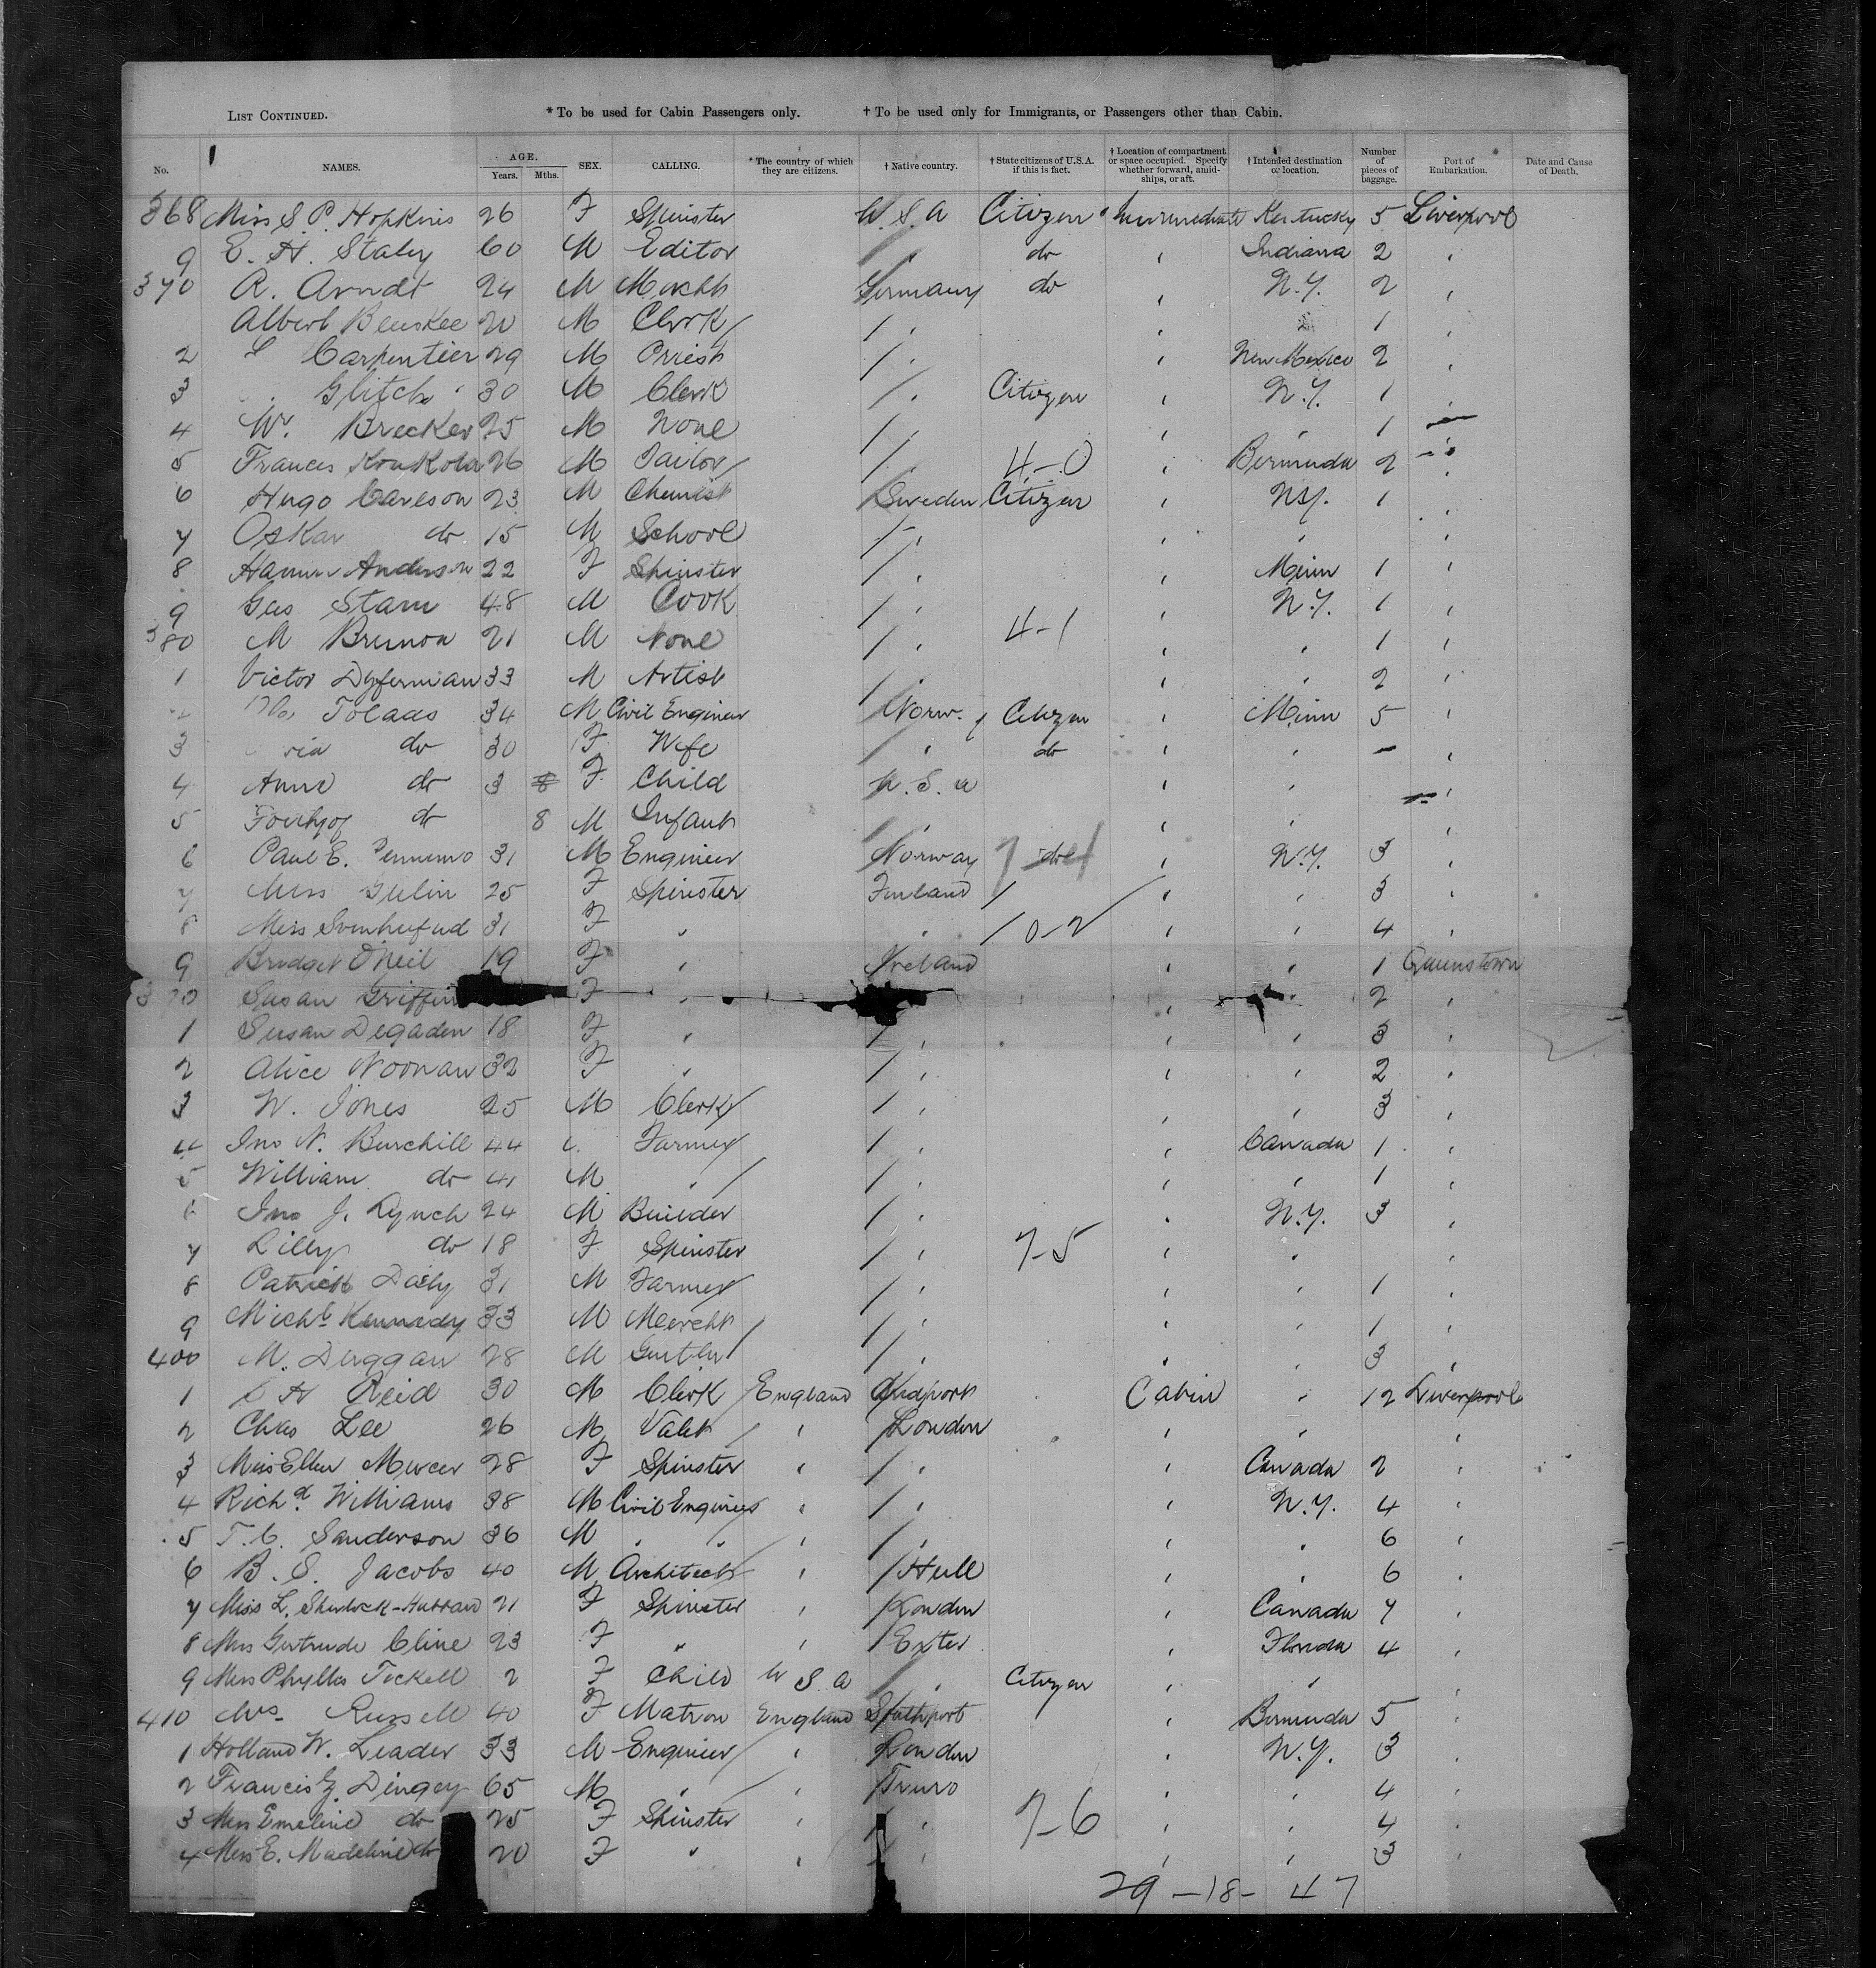 List Continued. * To be used for Cabin Passengers only. † To be used only for Immigrants, or Passengers other than Cabin.
No. NAMES. AGE. Years. Mths. SEX. CALLING. * The country of which they are citizens. † Native country. † State citizens of U.S.A. if this is fact. † Location of compartment or space occupied. Specify whether forward, amidships, or aft. † Intended destination or location. Number of pieces of baggage. Port of Embarkation. Date and Cause of Death.
368 Miss S. P. Hopkins 26 F Spinster U.S.A Citizen Intermediate Kentucky 5 Liverpool
9 E. H. Staley 60 M Editor do Indiana 2
370 R. Arndt 24 M Mercht Germany do N.Y. 2
Albert 20 M Clerk 1
2 Carpentier 29 M Priest New Mexico 2
3 Glitch 30 M Clerk Citizen N.Y. 1
4 W. Brecker 25 M None 1
5 Frances 26 M Tailor 4-0 Bermuda 2
6 Hugo Carlson 23 M Chemist Sweden Citizen N.Y. 1
7 Oskar do 15 M School
8 Anderson 22 F Spinster Minn 1
9 Gus Stam 48 M Cook N.Y. 1
380 M 21 M None 4-1 1
1 Victor 33 M Artist 2
Tolaas 34 M Civil Engineer Norw.y Citizen Minn 5
3 do 30 F Wife do -
4 Anna do 3 F Child U.S.a
5 do 8 M Infant
6 Paul E. 31 M Engineer Norway do N.Y. 3
7 Miss Gulin 25 F Spinster Finland 3
8 Miss Svinhufud 31 F " 10-2 4
9 Bridget O'Neil 19 F " Ireland 1 Queenstown
390 Susan Griffin F " 2
1 Susan Degaden 18 F " 3
2 Alice Noonan 32 F " 2
3 W. Jones 25 M Clerk 3
4 Jno N. Burchill 44 Farmer Canada 1
5 William do 41 M " 1
6 Jno J. Lynch 24 M Builder N.Y. 3
7 Lilly do 18 F Spinster 7-5
8 Patrick Daily 31 M Farmer 1
9 Michl Kennedy 33 M Mercht 1
400 M. Duggan 28 M 3
1 H Reid 30 M Clerk England Cabin 12 Liverpool
2 Chas Lee 26 M Valet " London
3 Miss Ellen Mercer 28 F Spinster " " Canada 2
4 Richd Williams 38 M Civil Engineer " " N.Y. 4
5 T. C. Sanderson 36 M " " " " 6
6 B. S. Jacobs 40 M Architect " Hull " 6
7 Miss L. Sherlock- 21 F Spinster " London Canada 7
8 Miss Gertrude Cline 23 F " " Exter Florida 4
9 Miss Phyllis Tickell 2 F Child U S A Citizen "
410 Mrs Russell 40 F Matron England Southport Bermuda 5
1 Holland W. Leader 33 M Engineer " London N.Y. 3
2 Francis G. Dingey 65 M " " Truro " 4
3 Miss Emeline do 25 F Spinster " " 7-6 " 4
4 Miss E. Madeline do 20 F " " " " 3
29 - 18 - 47